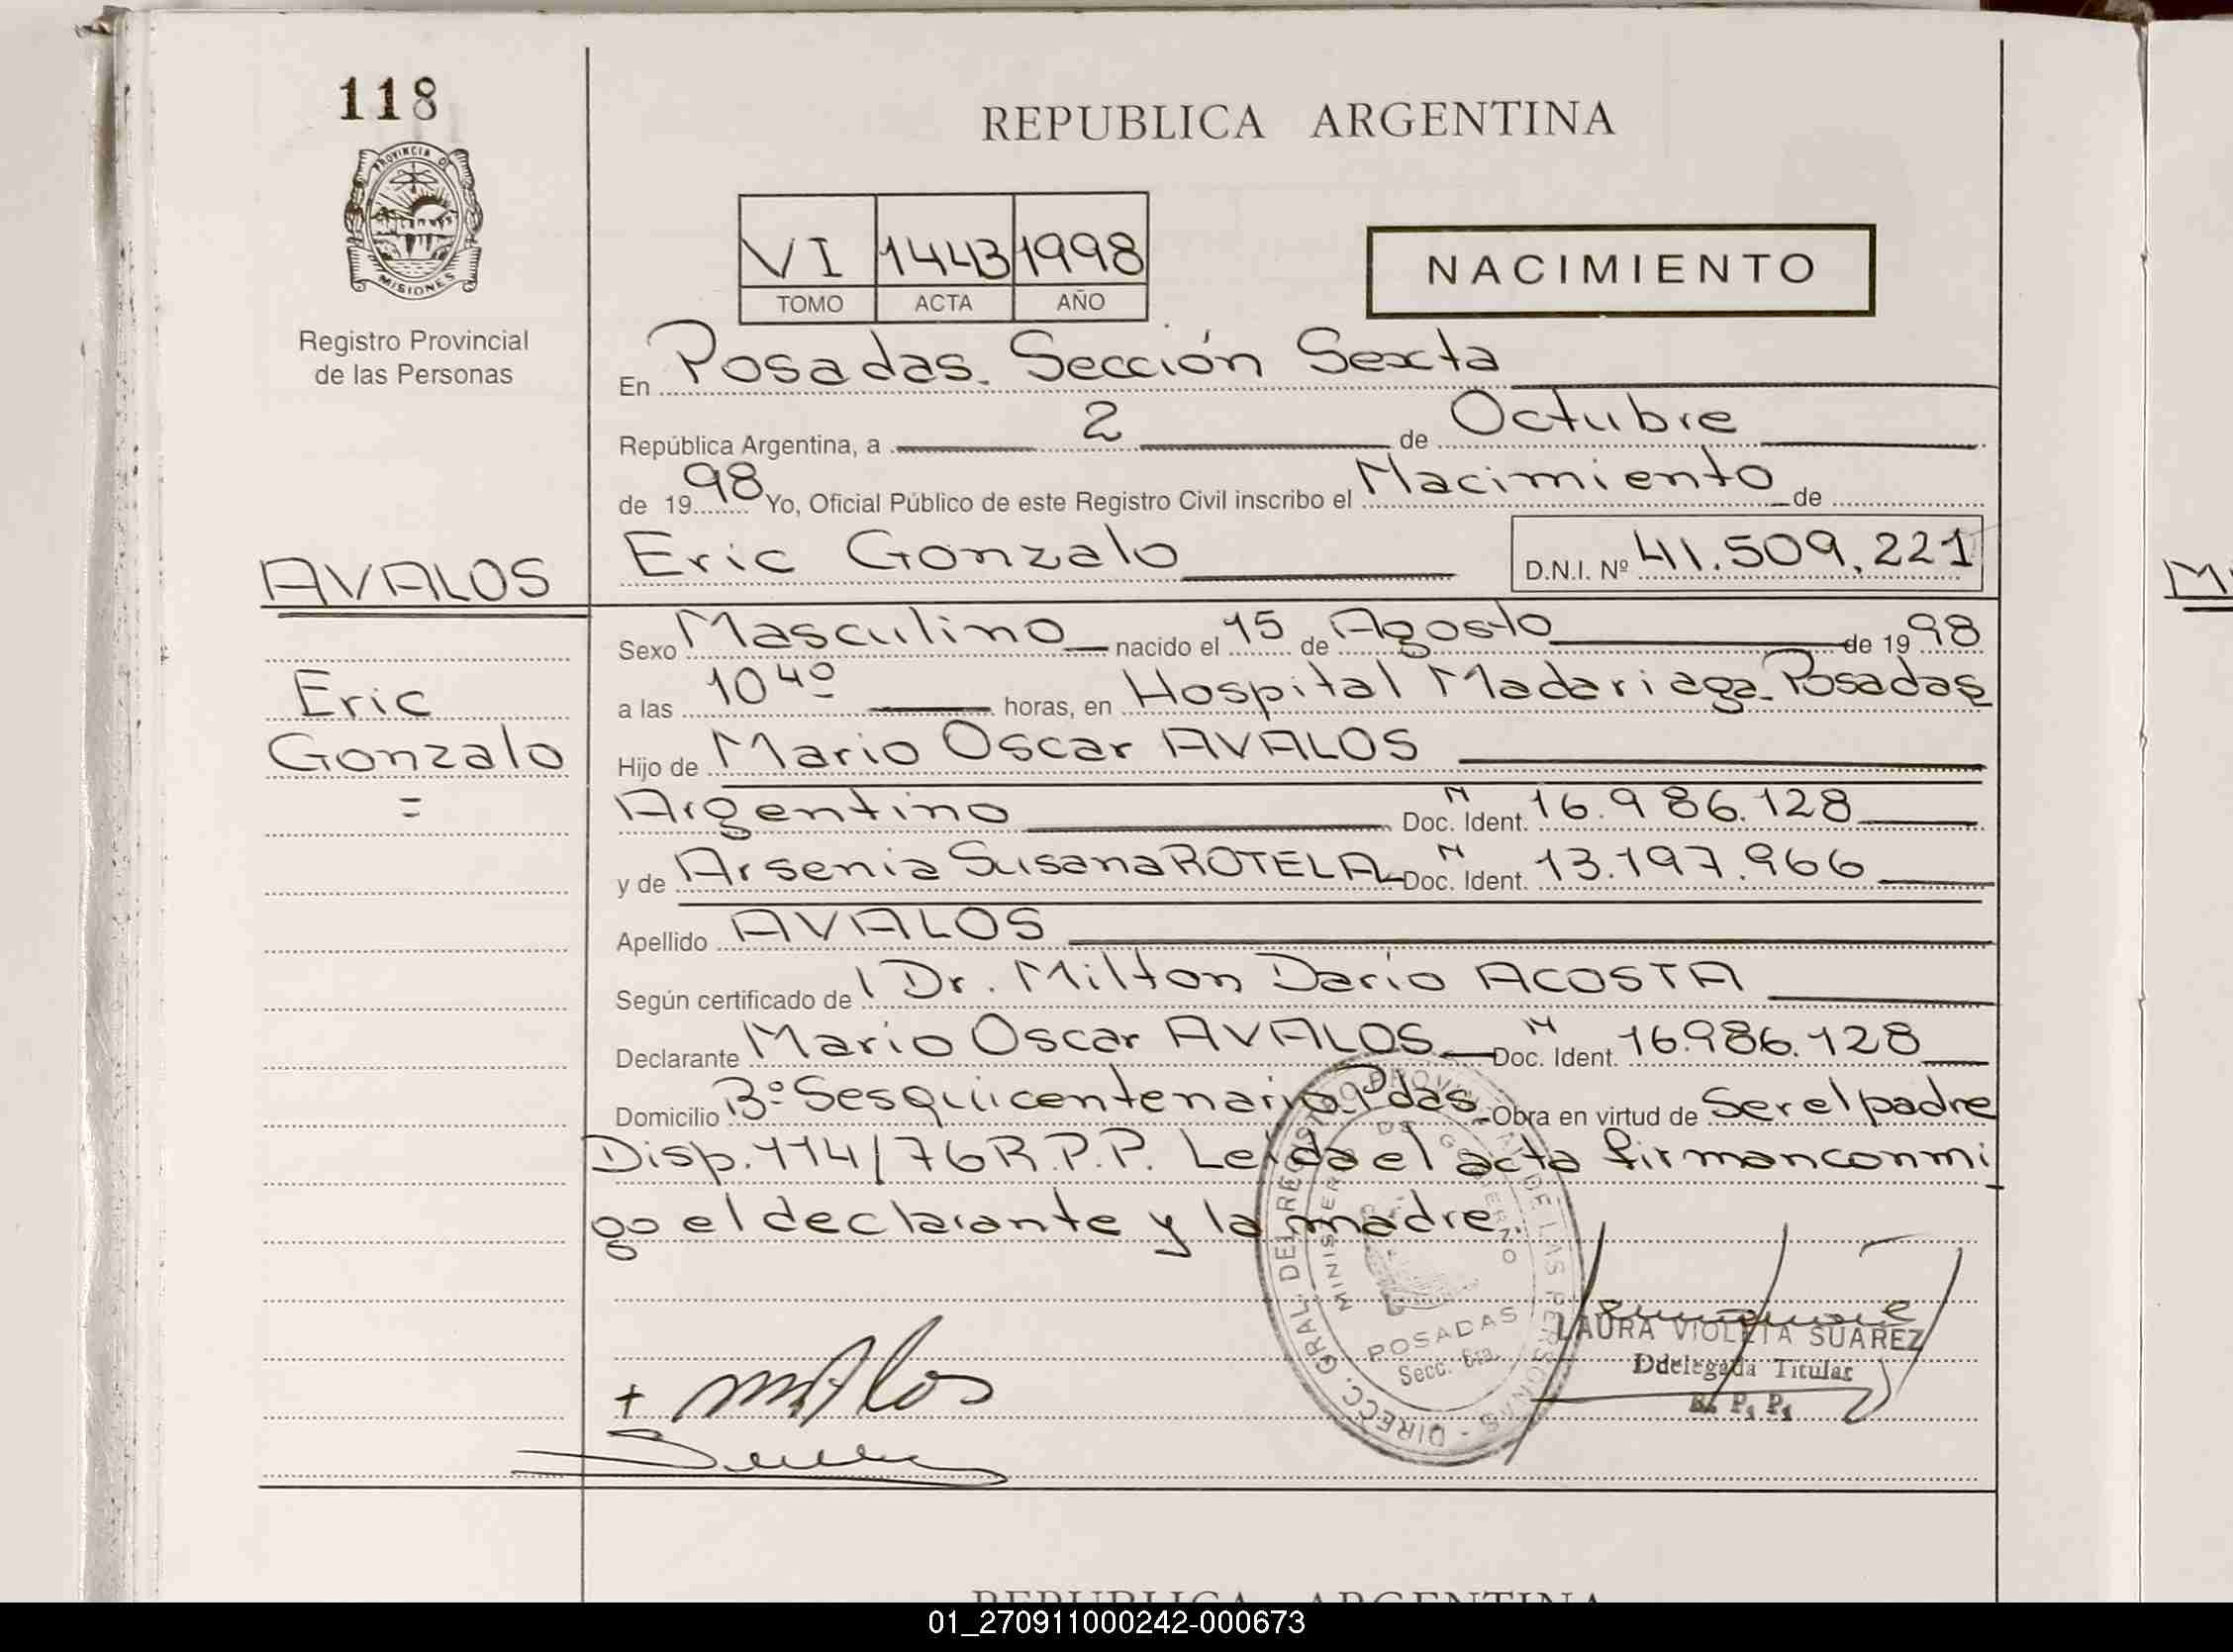 118
PROVINCIA DE
MISIONES
Registro Provincial
de las Personas
REPUBLICA ARGENTINA
VI 1443 1998
TOMO ACTA AÑO
NACIMIENTO
En Posadas. Sección Sexta
República Argentina, a 2 de Octubre
de 1998 Yo, Oficial Público de este Registro Civil inscribo el Nacimiento de
AVALOS
Eric Gonzalo D.N.I. Nº 41.509.221
Sexo Masculino nacido el 15 de Agosto de 1998
Eric
a las 10 40 horas, en Hospital Madariaga. Posadas
Gonzalo
Hijo de Mario Oscar AVALOS
=
Argentino Doc. Ident. N 16.986.128
y de Arsenia Susana ROTELA Doc. Ident. N 13.197.966
Apellido AVALOS
Según certificado de l Dr. Milton Dario ACOSTA
Declarante Mario Oscar AVALOS Doc. Ident. N 16.986.128
Domicilio Bº Sesquicentenario. Pdas. Obra en virtud de Ser el padre
Disp. 114/76 R.P.P. Leida el acta firman conmi
go el declarante y la madre.
DIRECC. GRAL. DEL REGISTRO PROVINCIAL DE LAS PERSONAS
MINISTERIO DE GOBIERNO
POSADAS
Secc. 6ta.
LAURA VIOLETA SUAREZ
Ddelegada Titular
R. P. P.
REPUBLICA ARGENTINA
01_270911000242-000673